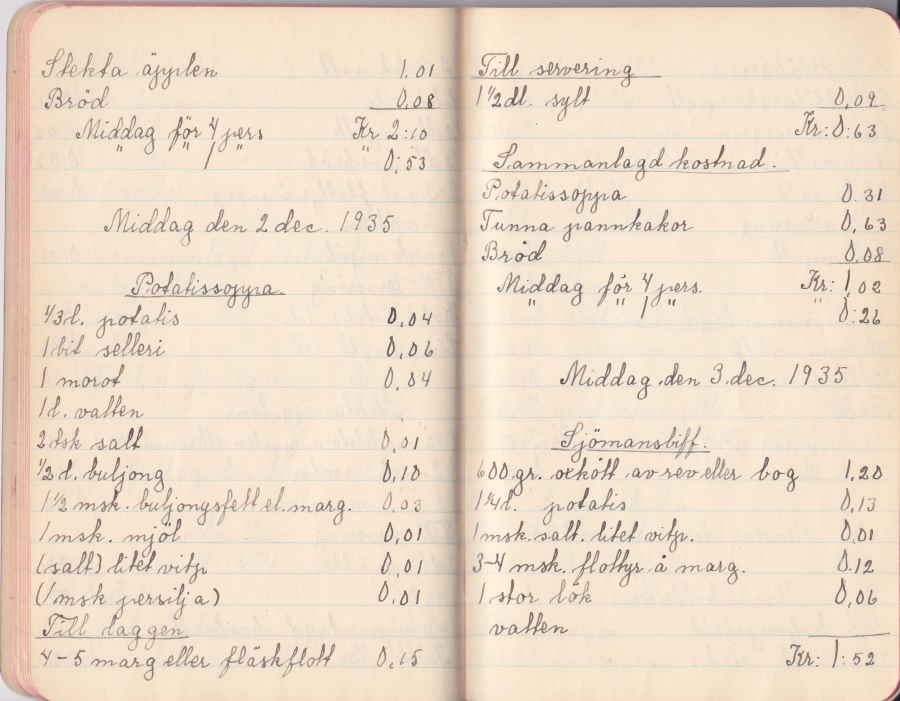 Stekta äpplen 1,01
Bröd 0,08
Middag för 4 pers Kr 2:10
" " 1 " " 0:53
Middag den 2 dec. 1935
Potatissoppa
1/3 l. potatis 0,04
1 bit selleri 0,06
1 morot 0,04
1 l. vatten
2 tsk salt 0,01
1/2 l. buljong 0,10
1 1/2 msk. buljongsfett el. marg. 0,03
1 msk. mjöl 0,01
(salt) litet vitp 0,01
(1 msk persilja) 0,01
Till laggen
4-5 marg eller fläskflott 0,15
Till servering
1 1/2 dl. sylt 0,09
Kr: 0:63
Sammanlagd kostnad.
Potatissoppa 0.31
Tunna pannkakor 0,63
Bröd 0,08
Middag för 4 pers. Kr: 1,02
" " 1 " " 0:26
Middag den 3 dec. 1935
Sjömansbiff.
600 gr. oxkött av rev eller bog 1,20
1 1/4 l. potatis 0,13
1 msk. salt. litet vitp. 0,01
3-4 msk. flottyr å marg. 0.12
1 stor lök 0,06
vatten
Kr: 1:52